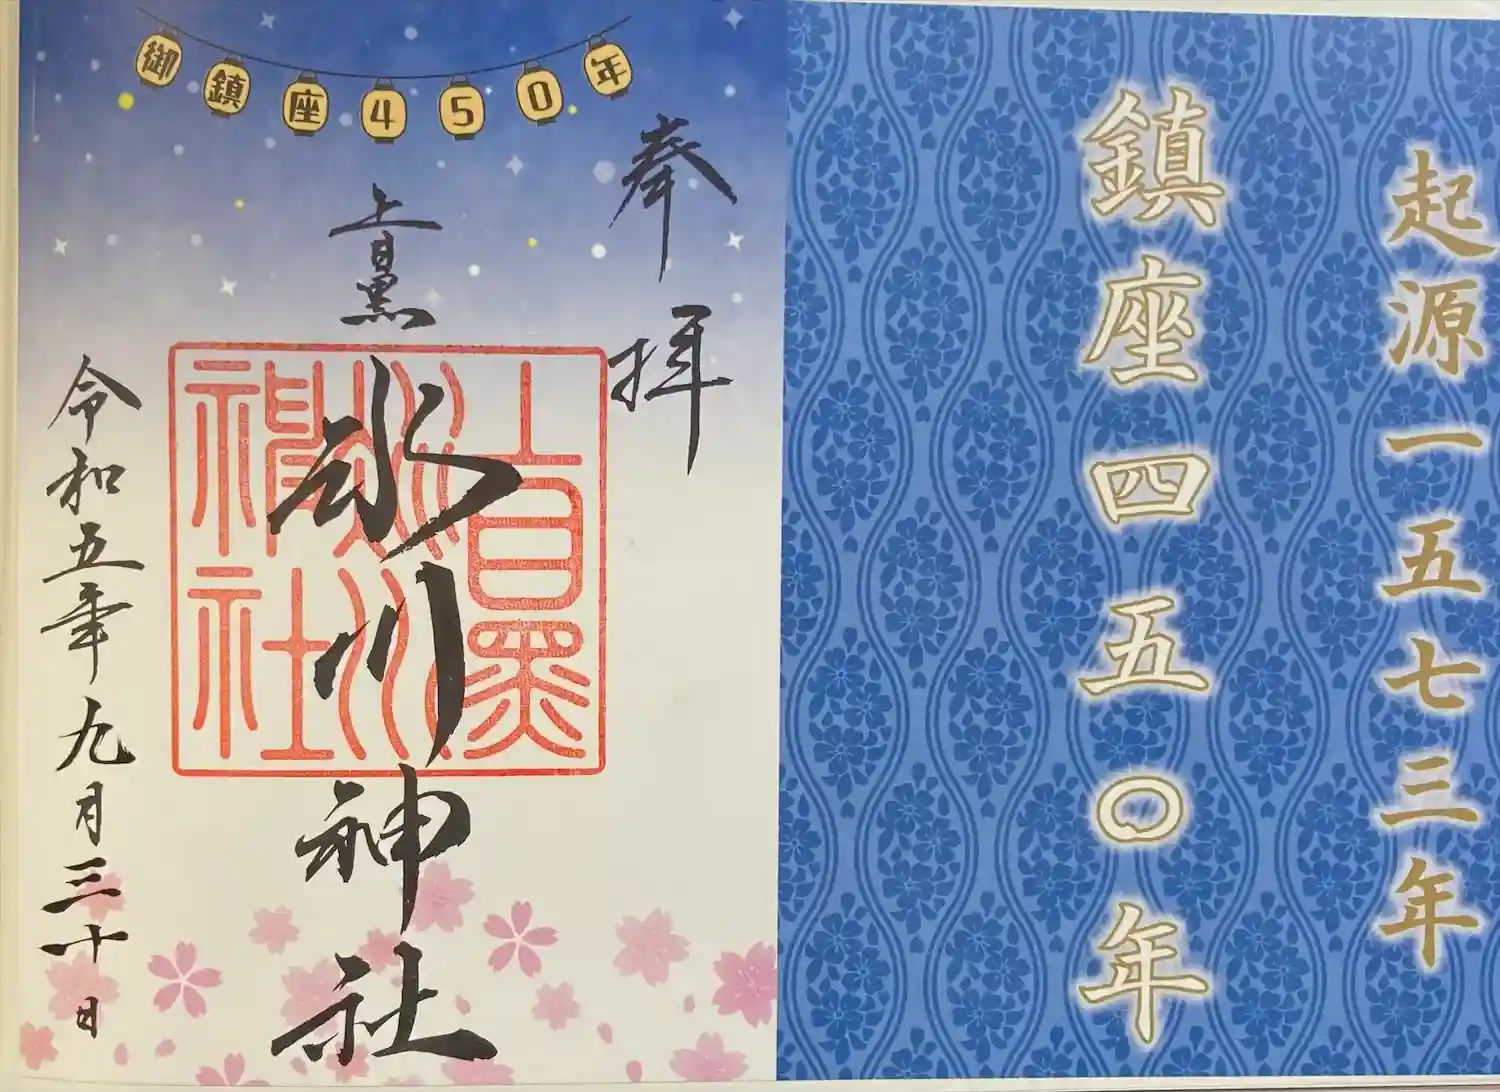 起源一五七三年
鎮座四五〇年
御鎮座450年
奉拝
上目黒
氷川神社
上目黒
氷川
神社
令和五年九月三十日